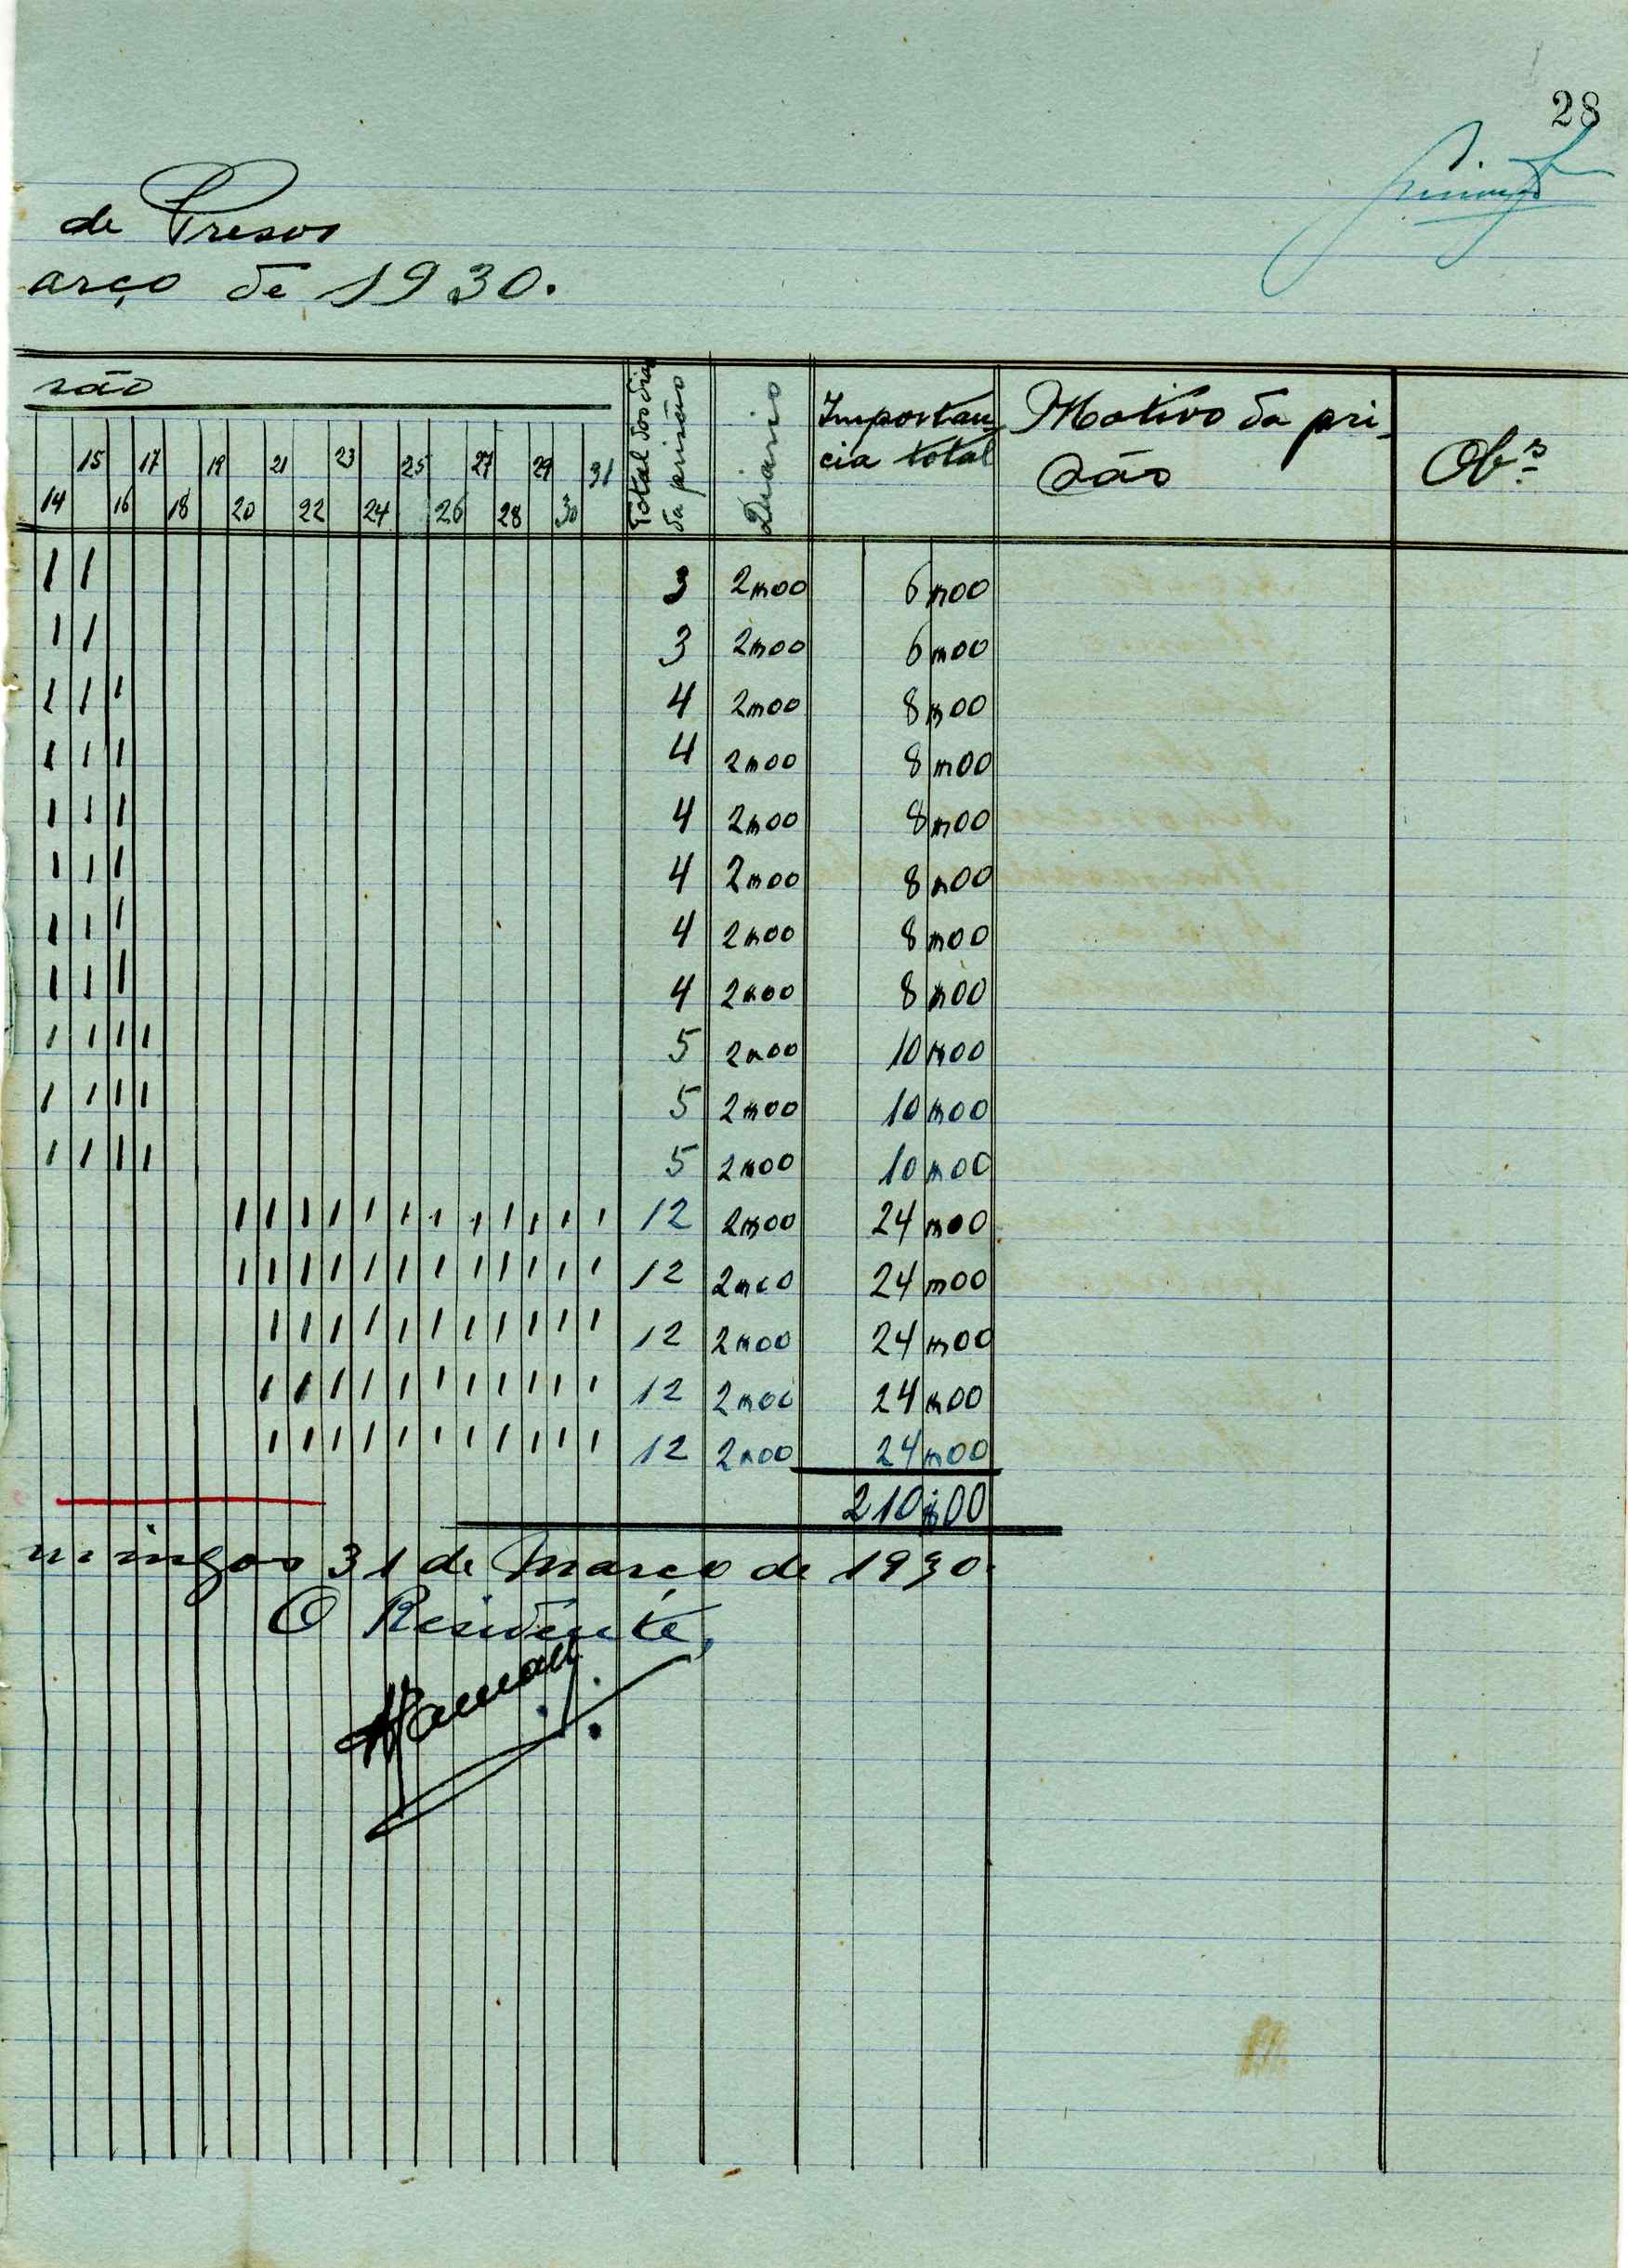 28
de Presos
arço de 1930.
são
Total dos dias da prisão
Diario
Importan-
cia total
Motivo da pri-
são
Obs
15 17 19 21 23 25 27 29 31
14 16 18 20 22 24 26 28 30
1 1 3 2$00 6$00
1 1 3 2$00 6$00
1 1 1 4 2$00 8$00
1 1 1 4 2$00 8$00
1 1 1 4 2$00 8$00
1 1 1 4 2$00 8$00
1 1 1 4 2$00 8$00
1 1 1 4 2$00 8$00
1 1 1 1 5 2$00 10$00
1 1 1 1 5 2$00 10$00
1 1 1 1 5 2$00 10$00
1 1 1 1 1 1 1 1 1 1 1 1 12 2$00 24$00
1 1 1 1 1 1 1 1 1 1 1 1 12 2$00 24$00
1 1 1 1 1 1 1 1 1 1 1 12 2$00 24$00
1 1 1 1 1 1 1 1 1 1 1 12 2$00 24$00
1 1 1 1 1 1 1 1 1 1 1 12 2$00 24$00
210$00
mingos 31 de Março de 1930.
O Residente,